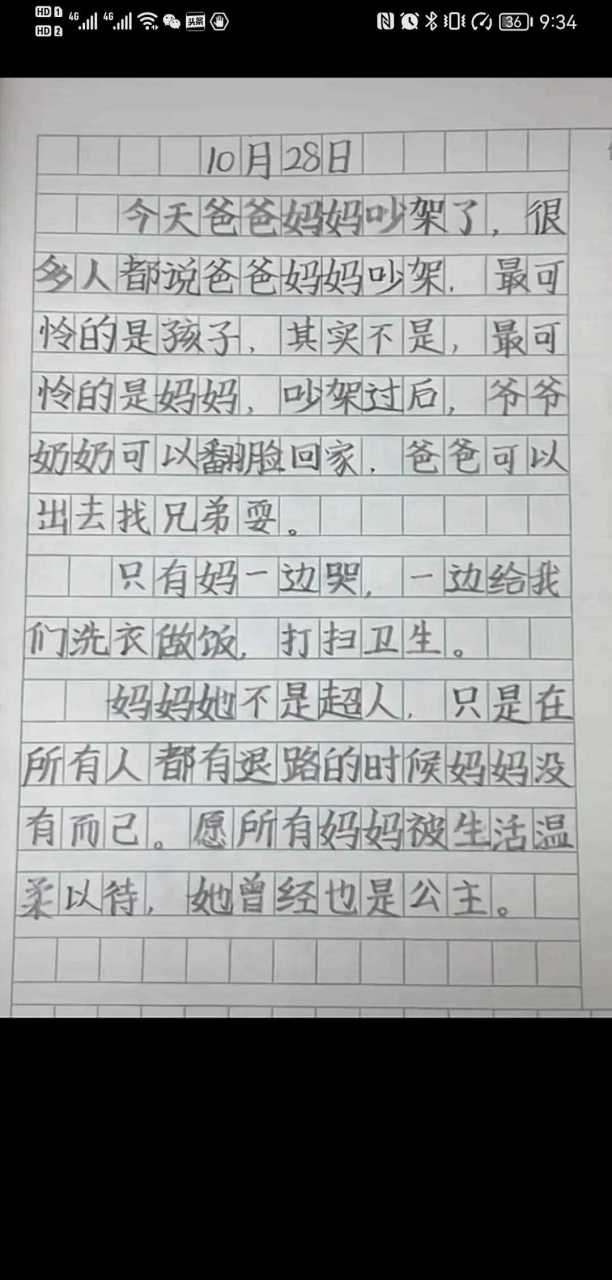 HD 1 4G 4G 头条 36 9:34
HD 2
10月28日
今天爸爸妈妈吵架了，很
多人都说爸爸妈妈吵架，最可
怜的是孩子，其实不是，最可
怜的是妈妈，吵架过后，爷爷
奶奶可以翻脸回家，爸爸可以
出去找兄弟耍。
只有妈一边哭，一边给我
们洗衣做饭，打扫卫生。
妈妈她不是超人，只是在
所有人都有退路的时候妈妈没
有而己。愿所有妈妈被生活温
柔以待，她曾经也是公主。